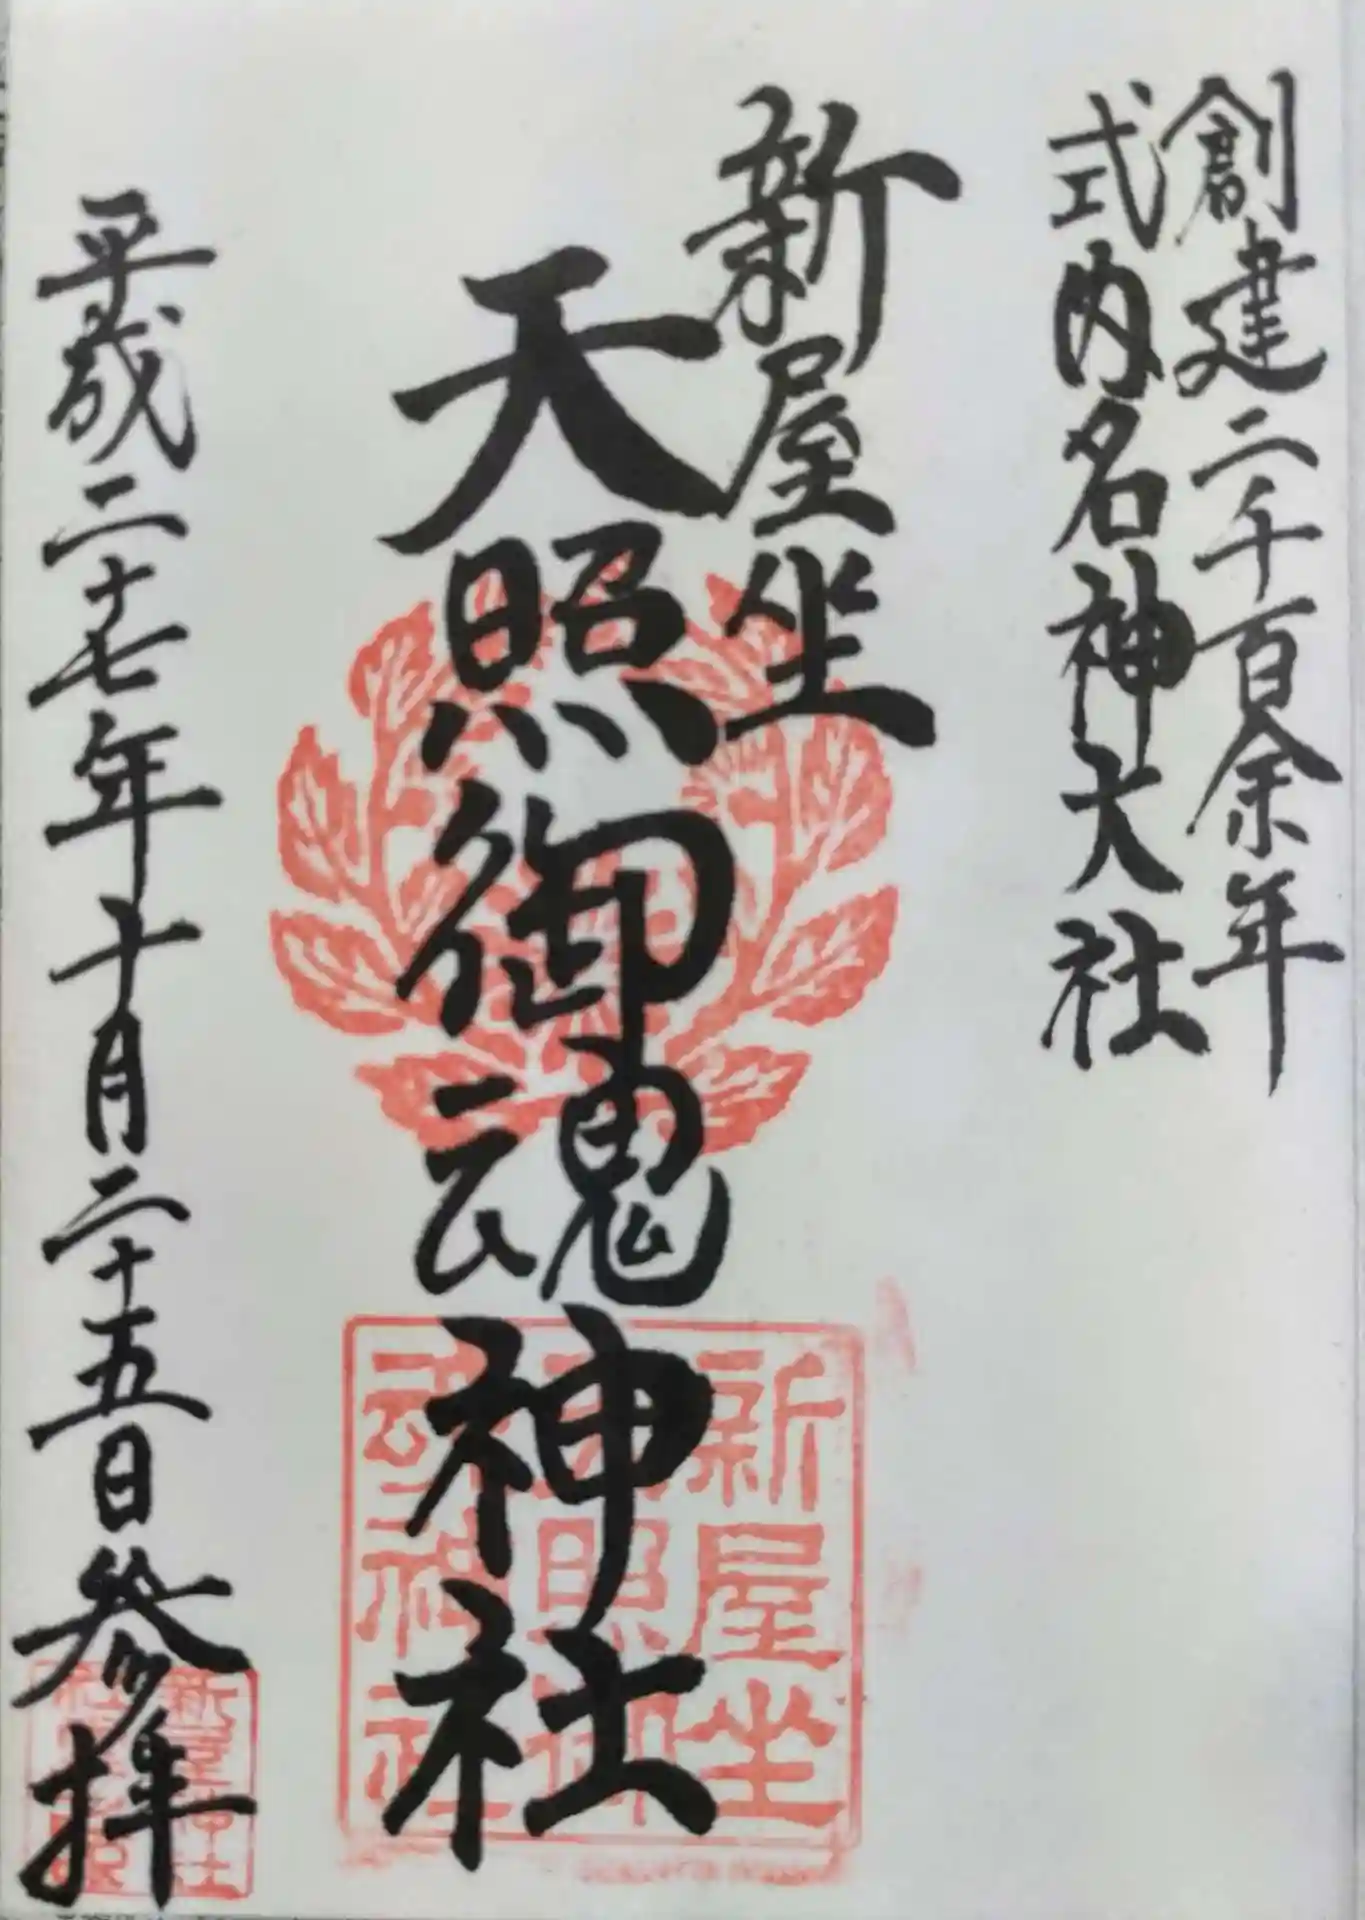 創建二千百余年
式内名神大社
新屋坐
天照御魂神社
平成二十七年十月二十五日参拝
新屋坐
照御
魂神社
新屋神社